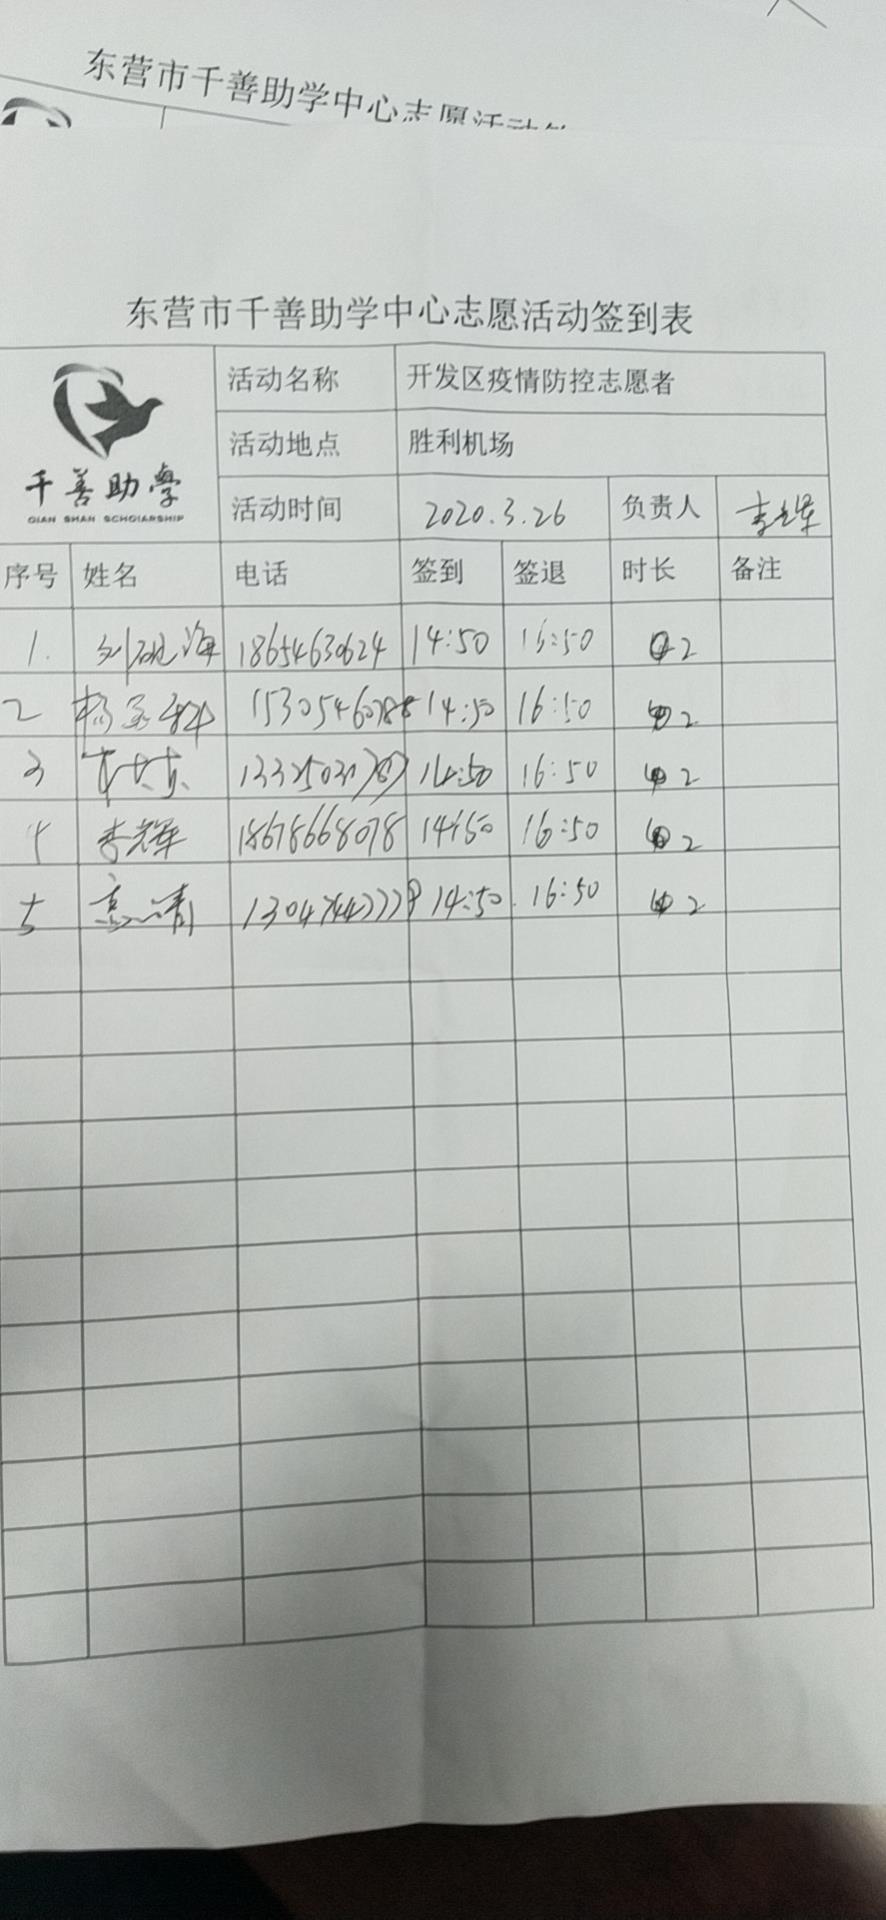 东营市千善助学中心志愿活动
东营市千善助学中心志愿活动签到表
千善助學
QIAN SHAN SCHOLARSHIP
活动名称 开发区疫情防控志愿者
活动地点 胜利机场
活动时间 2020.3.26 负责人 李辉
序号 姓名 电话 签到 签退 时长 备注
1. 刘砚海 18654630624 14:50 16:50 2
2 15305460788 14:50 16:50 2
3 14:50 16:50 2
4 李辉 18678668078 14:50 16:50 2
5 14:50 16:50 2